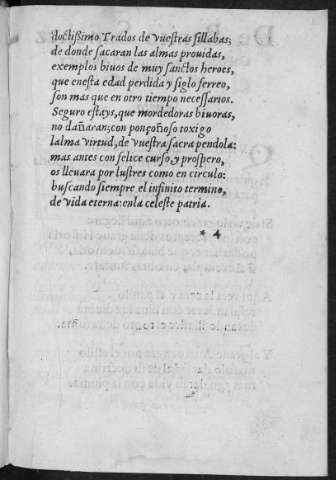 doctißimo Trados de vuestras sillabas;
de donde sacaran las almas prouidas,
exemplos biuos de muy sanctos heroes,
que enesta edad perdida y siglo ferreo,
son mas que en otro tiempo necessarios.
Seguro estays, que mordedoras biuoras,
no dañaran; con ponçoñoso toxigo
lalma virtud, de vuestra sacra pendola:
mas antes con felice curso, y prospero,
os lleuara por lustres como en circulo:
buscando siempre el infinito termino,
de vida eterna: enla celeste patria.
* 4